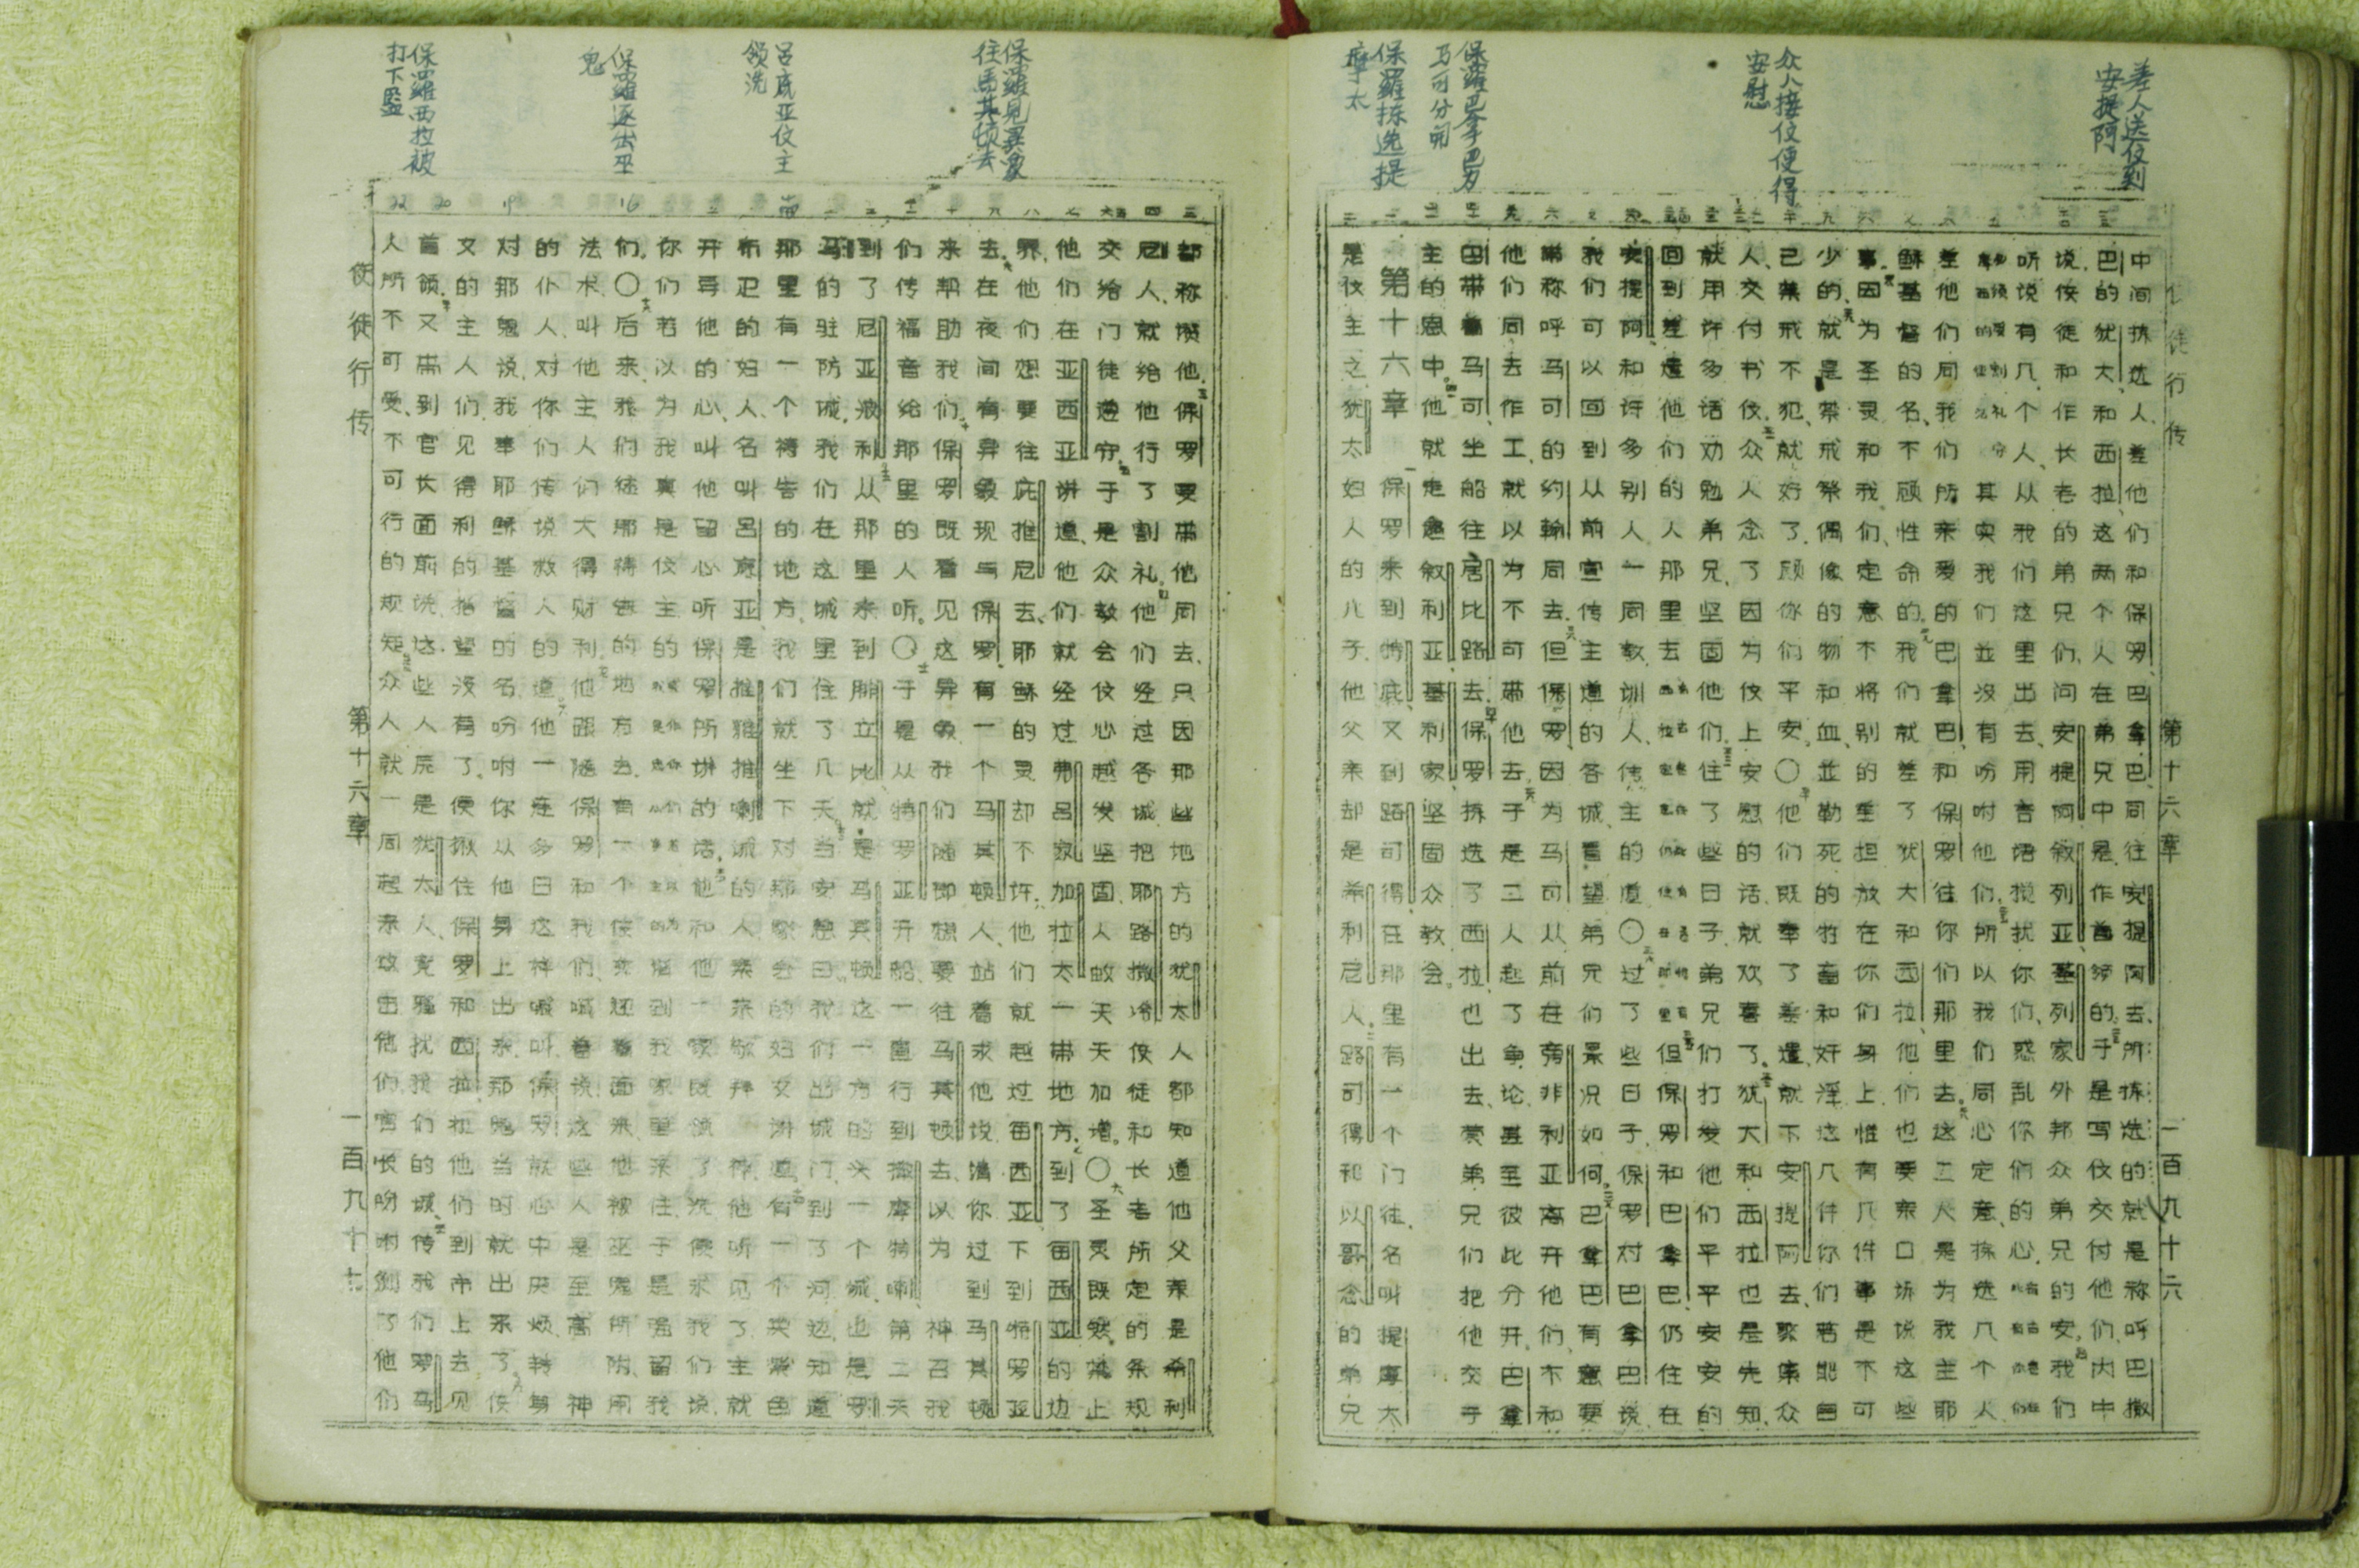 差人送伩到
安提阿
众人接伩便得
安慰
保羅巴拿巴为
马可分开
保羅拣选提
摩太
使徒行传 第十六章 一百九十六
中间拣选人、差他们和保罗巴拿巴同往安提阿去、所拣选的就是称呼巴撒
巴的犹大和西拉、这两个人在弟兄中是作首领的、于是写伩交付他们、内中
说、使徒和作长老的弟兄们、问安提阿叙利亚基利家外邦众弟兄的安、我们
听说有几个人、从我们这里出去、用言语搅扰你们、惑乱你们的心、
其实我们並没有吩咐他们、所以我们同心定意、拣选几个人、
差他们同我们所亲爱的巴拿巴和保罗往你们那里去、这二人是为我主耶
稣基督的名、不顾性命的、我们就差了犹大和西拉、他们也要亲口诉说这些
事、因为圣灵和我们、定意不将别的重担放在你们身上、惟有几件事是不可
少的、就是禁戒祭偶像的物和血、並勒死的牲畜和奸淫、这几件你们若能自
己禁戒不犯、就好了、愿你们平安、〇他们既奉了差遣、就下安提阿去、聚集众
人、交付书伩、众人念了、因为伩上安慰的话、就欢喜了、犹大和西拉也是先知、
就用许多话劝勉弟兄、坚固他们、住了些日子、弟兄们打发他们平平安安的
回到差遣他们的人那里去、但保罗和巴拿巴、仍住在
安提阿、和许多别人一同教训人、传主的道、〇过了些日子、保罗对巴拿巴说、
我们可以回到从前宣传主道的各城、看望弟兄们景况如何、巴拿巴有意要
带称呼马可的约翰同去、但保罗因为马可从前在旁非利亚离开他们、不和
他们同去作工、就以为不可带他去、于是二人起了争论、甚至彼此分开、巴拿
巴带着马可、坐船往居比路去、保罗拣选了西拉也出去、蒙弟兄们把他交于
主的恩中、他就走遍叙利亚基利家、坚固众教会。
第十六章 保罗来到特庇、又到路司得、在那里有一个门徒、名叫提摩太
是伩主之犹太妇人的儿子、他父亲却是希利尼人、路司得和以哥念的弟兄
保羅見異象
往馬其顿去
吕底亚伩主
领洗
保羅逐出巫
鬼
保羅西拉被
打下監
都称赞他、保罗要带他同去、只因那些地方的犹太人都知道他父亲是希利
尼人、就给他行了割礼、他们经过各城、把耶路撒冷使徒和长老所定的条规
交给门徒遵守、于是众教会伩心越发坚固、人数天天加增。〇圣灵既然禁止
他们在亚西亚讲道、他们就经过弗吕家加拉太一带地方、到了每西亚的边
界、他们想要往庇推尼去、耶稣的灵却不许、他们就越过每西亚、下到特罗亚
去、在夜间有异象现与保罗、有一个马其顿人、站着求他说、请你过到马其顿
来帮助我们、保罗既看见这异象、我们随即想要往马其顿去、以为 神召我
们传福音给那里的人听。〇于是从特罗亚开船、一直行到撒摩特喇、第二天
到了尼亚波利、从那里来到腓立比、就是马其顿这一方的头一个城、也是罗
马的驻防城、我们在这城里住了几天、当安息日、我们出城门、到了河边、知道
那里有一个祷告的地方、我们就坐下对那聚会的妇女讲道、有一个卖紫色
布疋的妇人、名叫吕底亚、是推雅推喇城的人、素来敬拜 神、他听见了、主就
开导他的心、叫他留心听保罗所讲的话、他和他一家既领了洗、便求我们说、
你们若以为我真是伩主的、到我家里来住、于是强留我
们、〇后来、我们往那祷告的地方去、有一个使女迎着面来、他被巫鬼所附、用
法术、叫他主人们大得财利、他跟随保罗和我们、喊着说、这些人是至高 神
的仆人、对你们传说救人的道、他一连多日这样喊叫、保罗就心中厌烦、转身
对那鬼说、我奉耶稣基督的名、吩咐你从他身上出来、那鬼当时就出来了、使
女的主人们、见得利的指望没有了、便揪住保罗和西拉、拉他们到市上去见
首领、又带到官长面前说、这些人原是犹太人、竟骚扰我们的城、传我们罗马
人所不可受、不可行的规矩、众人就一同起来攻击他们、官长吩咐剥了他们
使徒行传 第十六章 一百九十七